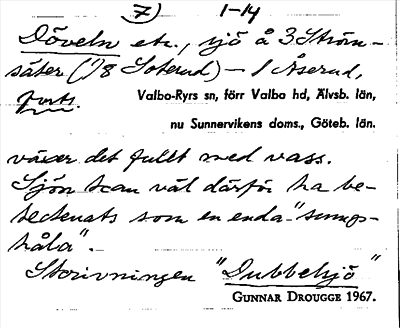 7) 1-14
Döveln etc., sjö å 3 Ström-
säter (1/8 Soterud) – 1 Åserud,
forts. Valbo-Ryrs sn, förr Valbo hd, Älvsb. län,
nu Sunnervikens doms., Göteb. län.
växer det fullt med vass.
Sjön kan väl därför ha be-
tecknats som en enda "sump-
håla".
Skrivningen "Dubbelsjö"
GUNNAR DROUGGE 1967.